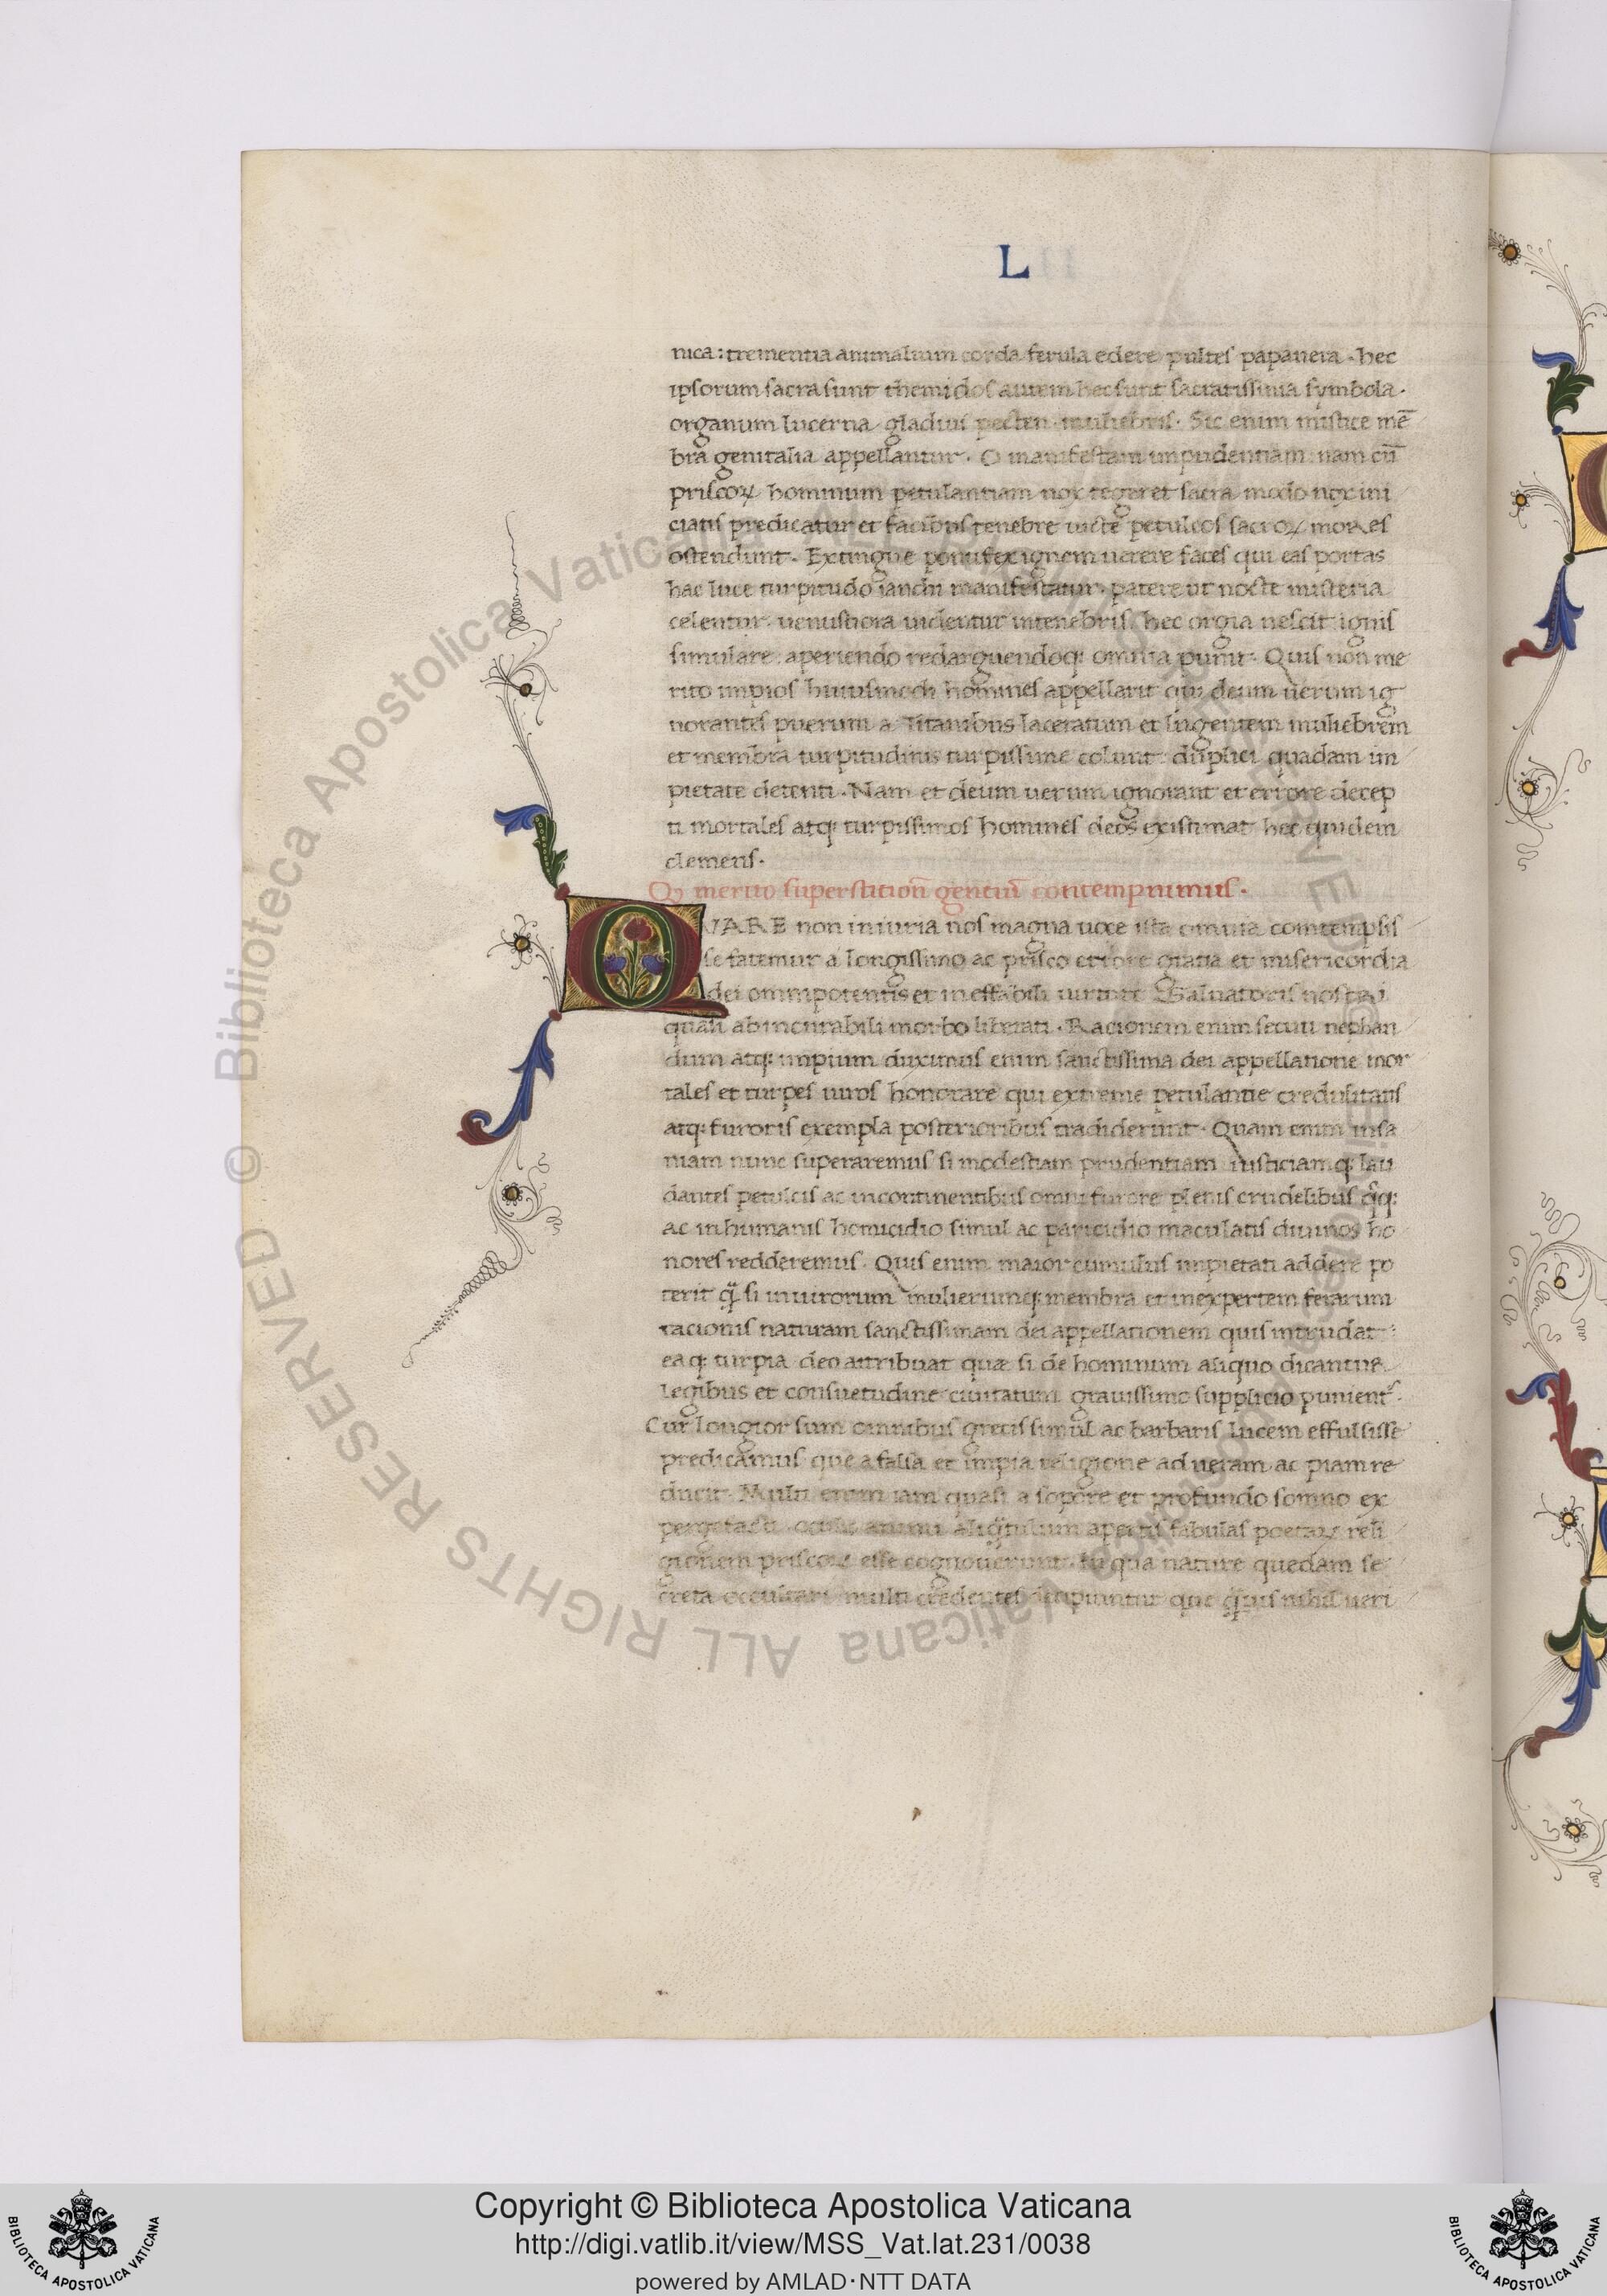 L
nica: trementia animalium corda ferula edere pultes papaneia. hec
ipsorum sacra sunt themidos autem hec sunt sacratissima symbola.
organum lucerna gladius pecten muliebris. Sic enim mistice mē
bra genitalia appellantur. O manifestam impudentiam nam cū
priscoꝝ hominum petulantiam nox tegeret sacra modo nox ini
ciatis predicatur et facibus tenebre uicte petulcos sacroꝝ mores
ostendunt. Extingue pontifex ignem uerere faces qui eas portas
hac luce turpitudo iandri manifestatur. patere ut nocte misteria
celentur. uenustiora uidentur in tenebris hec orgia nescit ignis
simulare. aperiendo redarguendoq: omnia punit. Quis non me
rito impios huiusmodi homines appellarit qui deum uerum ig
norantes puerum a Titanibus laceratum et lugentem muliebrem
et membra turpitudinis turpissime colunt duplici quadam im
pietate detenti. Nam et deum uerum ignorant et errore decep
ti mortales atq: turpissimos homines deos existimat hec quidem
clemens.
Qꝫ merito superstitioñ gentiū contempnimus.
QVARE non iniuria nos magna uoce ista omnia comtempsis
se fatemur a longissimo ac prisco errore gratia et misericordia
dei omnipotentis et ineffabili uirtute Saluatoris nostri
quasi ab incurabili morbo liberati. Racionem enim secuti nephan
dum atq: impium duximus enim sanctissima dei appellatione mor
tales et turpes uiros honorare qui extreme petulantie credulitatis
atq: furoris exempla posterioribus tradiderunt. Quam enim insa
niam nunc superaremus si modestiam prudentiam iusticiamq: lau
dantes petulcis ac incontinentibus omni furore plenis crudelibus q̃q:
ac inhumanis homicidio simul ac paricidio maculatis diuinos ho
nores redderemus. Quis enim maior cumulus impietati addere po
terit q̃ si in uirorum mulierumq: membra et inexpertem ferarum
racionis naturam sanctissimam dei appellationem quis intrudat:
eaq: turpia deo attribuat quæ si de hominum aliquo dicantur
legibus et consuetudine ciuitatum grauissimo supplicio punient.
Cur longior sum omnibus grecis simul ac barbaris lucem effulsisse
predicamus que a falsa et impia religione ad ueram ac piam re
ducit. Multi enim iam quasi a sopore et profundo somno ex
pergefacti oculis animi aliq̃tulum apertis fabulas poetaꝝ reli
gionem priscoꝝ esse cognouerunt. In qua nature quedam se
creta occultari multi credentes decipiuntur que q̃uis nihil ueri